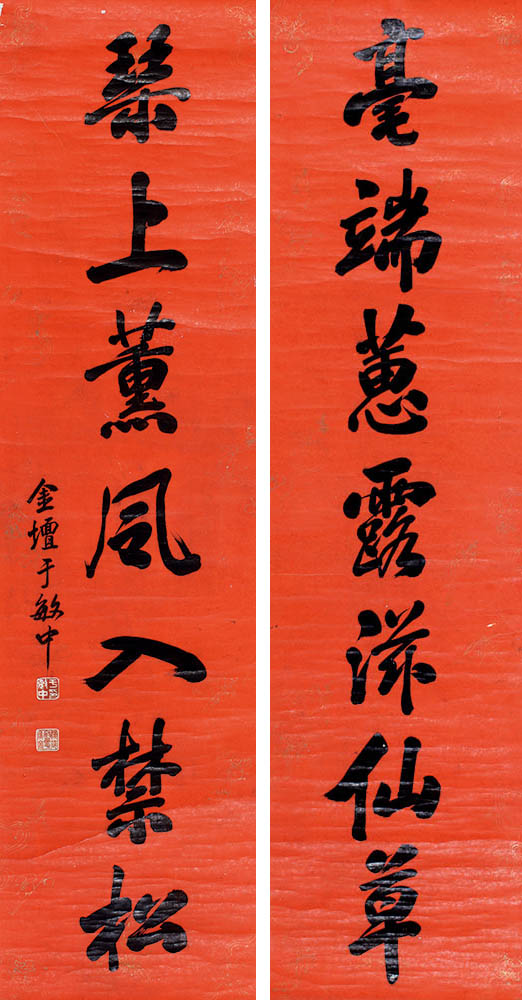 毫端蕙露滋仙草
琴上薰風入禁松
金壇于敏中